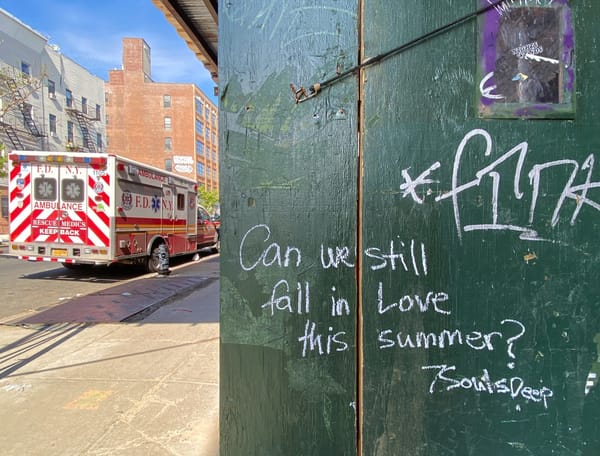 F.D. N.Y.
AMBULANCE
RESCUE MEDICS
KEEP BACK
AMBULANCE
F.D. N.Y.
Can we still
fall in Love
this summer?
7SoulsDeep